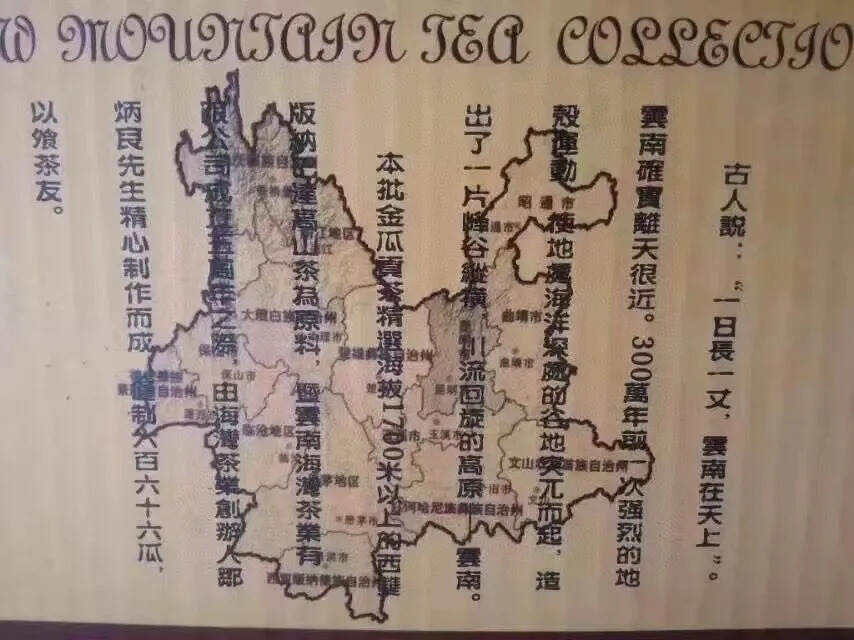 W MOUNTAIN TEA COLLECTIO
古人說：“一日長一丈，雲南在天上”。
雲南確實離天很近。300萬年前一次強烈的地
殼運動，使地處海洋深處的谷地突兀而起，造
出了一片峰谷縱橫、川流回旋的高原——雲南。
本批金瓜貢茶精選海拔1700米以上的西雙
版納巴達高山茶為原料，暨雲南海灣茶業有
限公司成立五周年之際，由海灣茶業創辦人鄒
炳良先生精心制作而成，僅制六百六十六瓜，
以饗茶友。
昭通市
曲靖市
曲靖市
大理白族自治州
保山市
临沧地区
玉溪市
思茅市